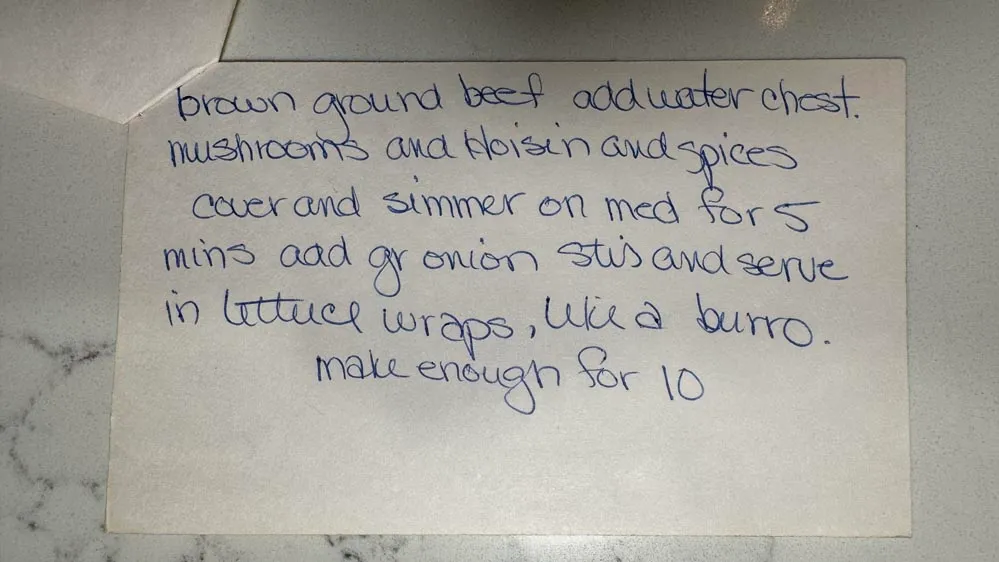 brown ground beef add water chest.
mushrooms and Hoisin and spices
cover and simmer on med for 5
mins add gr onion stir and serve
in lettuce wraps, like a burro.
make enough for 10